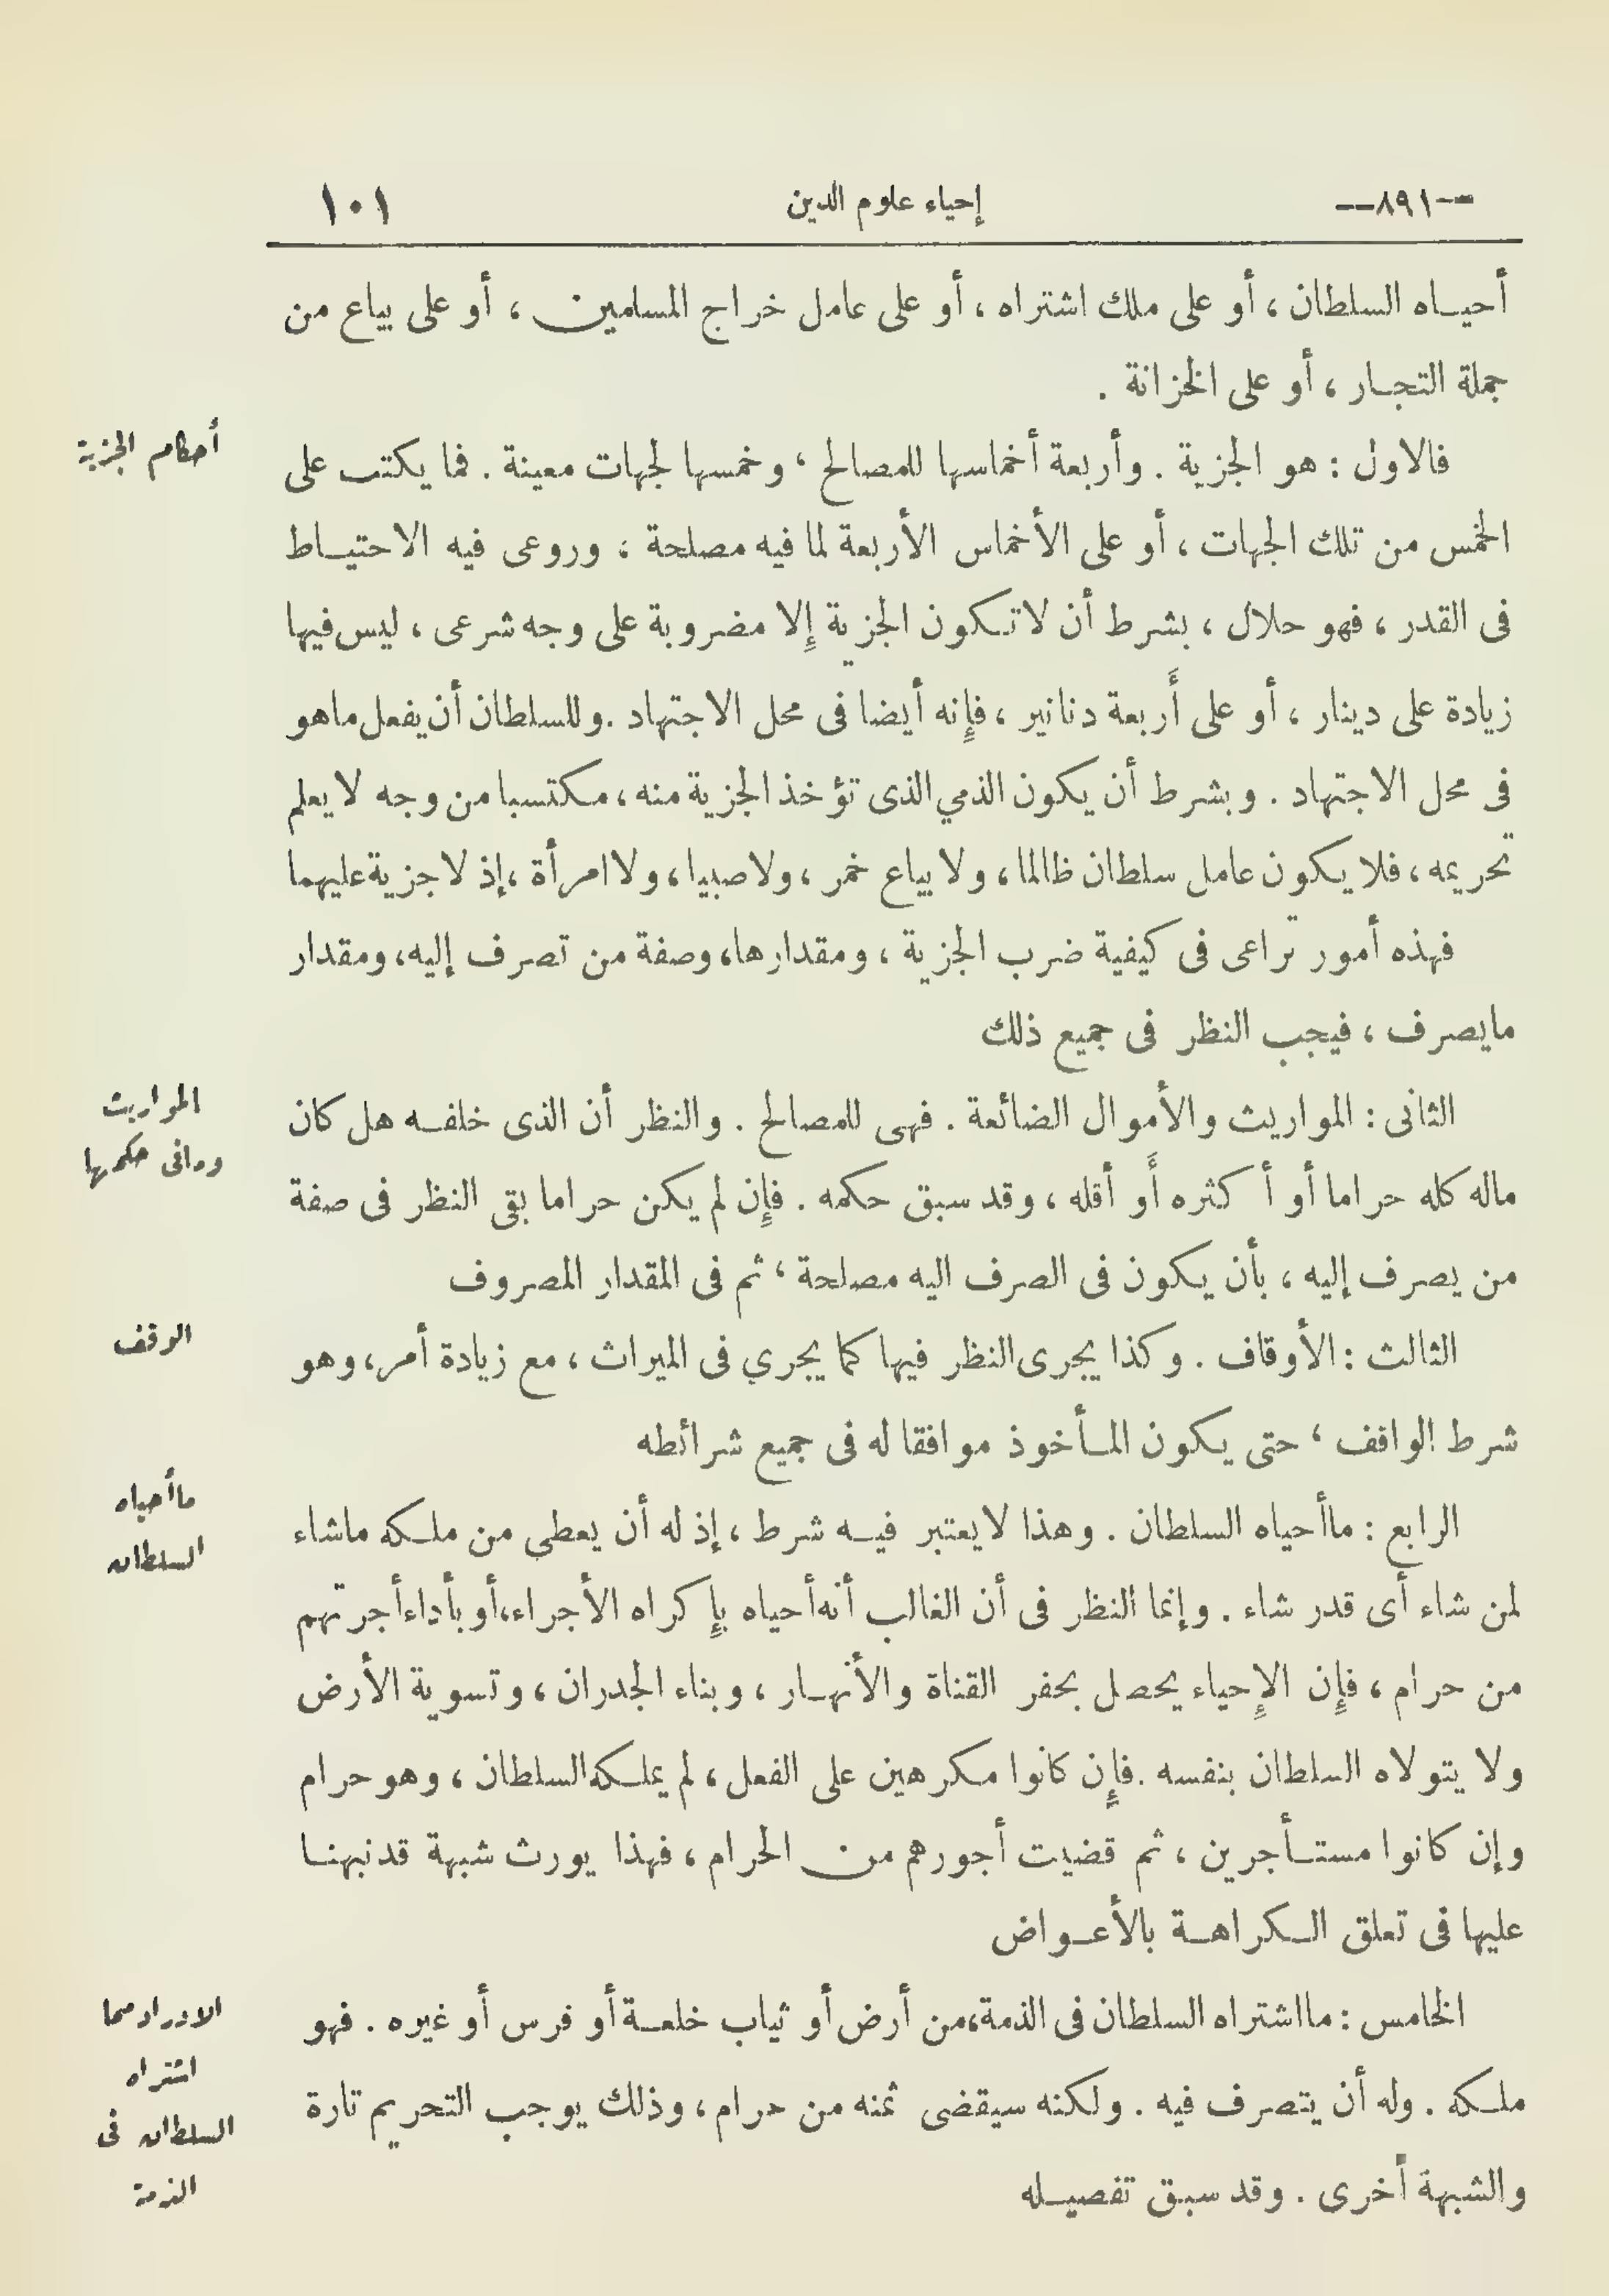 --٨٩١--
إحياء علوم الدين
١٠١
أحيـاه السلطان ، أو على ملك اشتراه ، أو على عامل خراج المسلمين ، أو على بياع من
جملة التجـار ، أو على الخزانة .
أحكام الجزية
فالاول : هو الجزية . وأربعة أخماسها للمصالح ، وخمسها لجهات معينة . فما يكتب على
الخمس من تلك الجهات ، أو على الأخماس الأربعة لما فيه مصلحة ، وروعى فيه الاحتيـاط
فى القدر ، فهو حلال ، بشرط أن لا تـكون الجزية إلا مضروبة على وجه شرعى ، ليس فيها
زيادة على دينار ، أو على أربعة دنانير ، فإنه أيضا فى محل الاجتهاد . وللسلطان أن يفعل ماهو
فى محل الاجتهاد . وبشرط أن يكون الذمي الذى تؤخذ الجزية منه ، مـكتسبا من وجه لا يعلم
تحريمه ، فلا يـكون عامل سلطان ظالما ، ولا بياع خمر ، ولا صبيا ، ولا امرأة ، إذ لا جزية عليهما
فهذه أمور تراعى فى كيفية ضرب الجزية ، ومقدارها، وصفة من تصرف إليه، ومقدار
مايصرف ، فيجب النظر فى جميع ذلك
المواريث
ومافى حكمها
الثانى : المواريث والأموال الضائعة . فهى للمصالح . والنظر أن الذى خلفـه هل كان
ماله كله حراما أو أكثره أو أقله ، وقد سبق حكمه . فإن لم يكن حراما بقى النظر فى صفة
من يصرف إليه ، بأن يـكون فى الصرف اليه مصلحة ، ثم فى المقدار المصروف
الوقف
الثالث : الأوقاف . وكذا يجرى النظر فيها كما يجري فى الميراث ، مع زيادة أمر، وهو
شرط الواقف ، حتى يـكون المـأخوذ موافقا له فى جميع شرائطه
ماأحياه
السلطان
الرابع : ماأحياه السلطان . وهذا لا يعتبر فيـه شرط ، إذ له أن يعطى من ملـكه ماشاء
لمن شاء أى قدر شاء . وإنما النظر فى أن الغالب أنه أحياه بإكراه الأجراء، أو بأداء أجرتهم
من حرام ، فإن الإحياء يحصل بحفر القناة والأنهـار ، وبناء الجدران ، وتسوية الأرض
ولا يتولاه السلطان بنفسه . فإن كانوا مـكرهين على الفعل ، لم يملـكه السلطان ، وهو حرام
وإن كانوا مستـأجرين ، ثم قضيت أجورهم من الحرام ، فهذا يورث شبهة قد نبهنـا
عليها فى تعلق الـكراهـة بالأعـواض
الادرار مما
اشتراه
السلطان فى
الذمة
الخامس : مااشتراه السلطان فى الذمة، من أرض أو ثياب خلعـة أو فرس أو غيره . فهو
ملـكه . وله أن يتصرف فيه . ولكنه سيقضى ثمنه من حرام ، وذلك يوجب التحريم تارة
والشبهة أخرى . وقد سبق تفصيـله